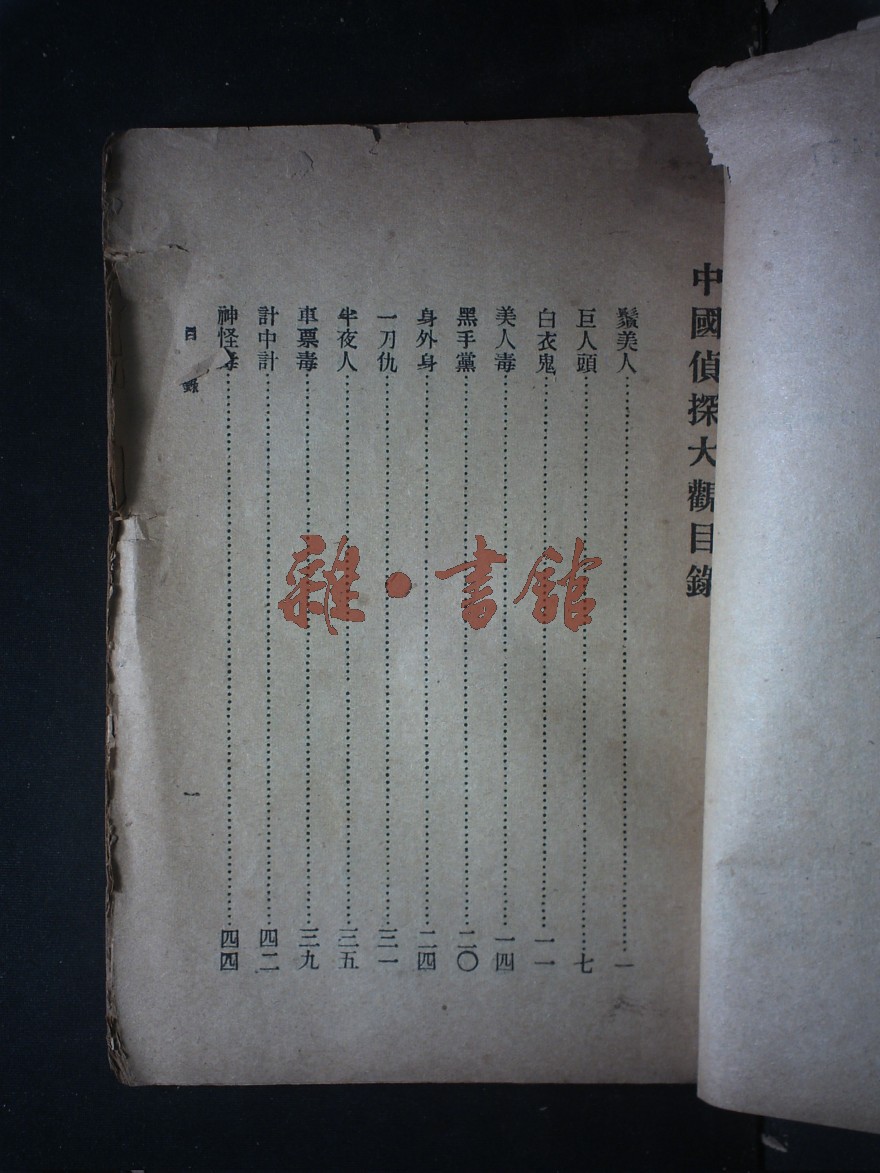 中國偵探大觀目錄
鬚美人……一
巨人頭……七
白衣鬼……一一
美人毒……一四
黑手黨……二〇
身外身……二四
一刀仇……三一
半夜人……三五
車票毒……三九
計中計……四二
神怪……四四
目錄
一
雜·書館